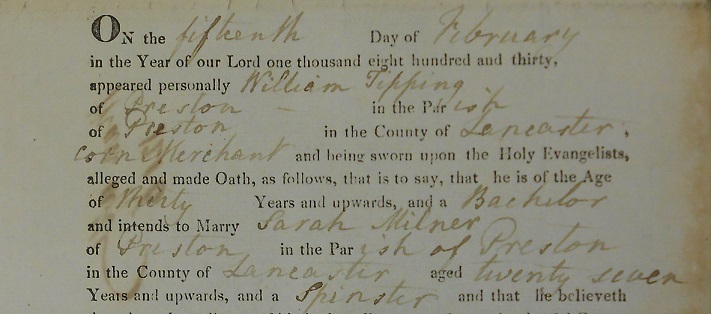 ON the fifteenth Day of February
in the Year of our Lord one thousand eight hundred and thirty,
appeared personally William Tipping
of Preston – in the Parish
of Preston in the County of Lancaster,
corn Merchant and being sworn upon the Holy Evangelists,
alleged and made Oath, as follows, that is to say, that he is of the Age
of thirty Years and upwards, and a Bachelor
and intends to Marry Sarah Milner
of Preston in the Parish of Preston
in the County of Lancaster aged twenty seven
Years and upwards, and a Spinster and that he believeth